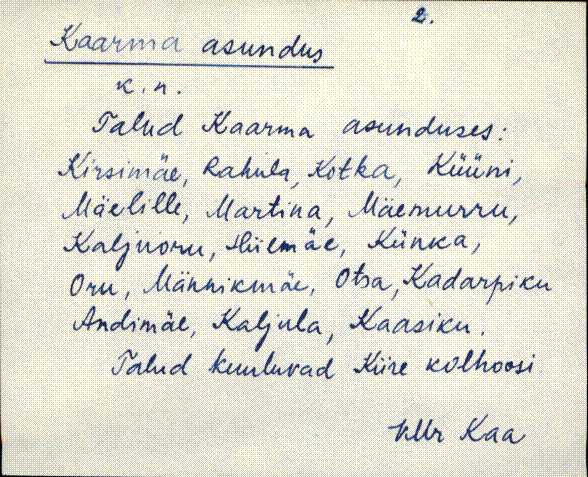 2.
Kaarma asundus
k.n.
Talud Kaarma asunduses:
Kirsimäe, Rahula, Kotka, Küüni,
Mäelille, Martina, Mäemurru,
Kaljuoru, Hiiemäe, Künka,
Oru, Männikmäe, Otsa, Kadarpiku
Andimäe, Kaljula, Kaasiku.
Talud kuuluvad Kiire kolhoosi
Kaa